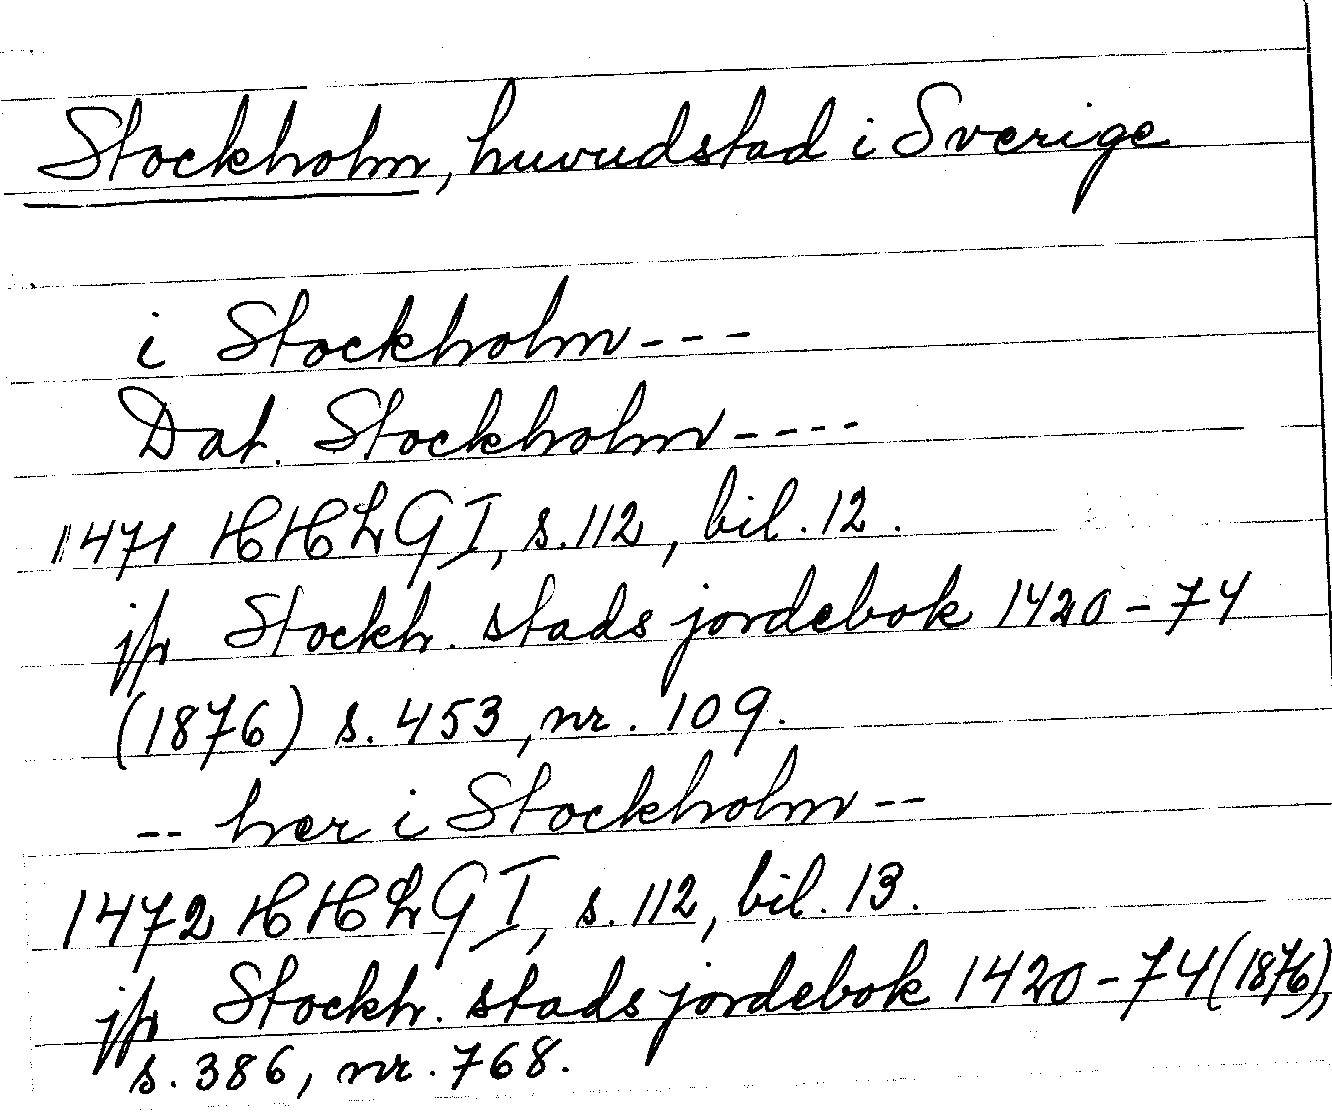 Stockholm, huvudstad i Sverige
i Stockholm---
Dat. Stockholm----
1471 HHLGI, s.112, bil.12.
jfr Stockh. stads jordebok 1420-74
(1876) s. 453, nr. 109.
-- hær i Stockholm--
1472 HHLGI, s.112, bil.13.
jfr Stockh. stads jordebok 1420-74(1876),
s.386, nr.768.